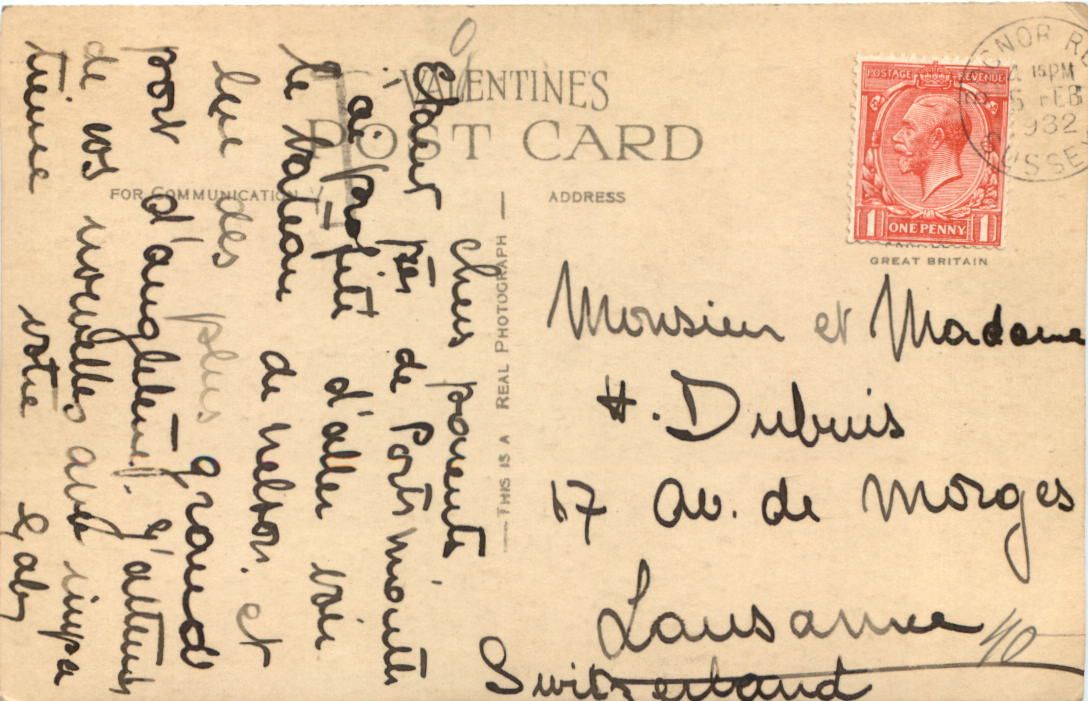 VALENTINE'S
POST CARD
FOR COMMUNICATION
ADDRESS
THIS IS A REAL PHOTOGRAPH
POSTAGE REVENUE
1 ONE PENNY 1
GREAT BRITAIN
BOGNOR RE
4 15PM
6 FEB
1932
SUSSE
chers parents
Etant près de Portsmouth
j'ai profité d'aller voir
le bateau de Nelson. et
l'un des plus grand
port d'angleterre. J'attends
de vos nouvelles avec impa
tience votre Gaby
Monsieur et Madame
H. Dubuis
17 Av. de Morges
Lausanne
Switzerland
40